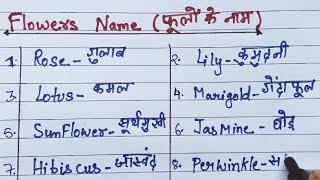 Flowers Name (फूलों के नाम)
1. Rose - गुलाब 2. Lily - कुमुदनी
3. Lotus - कमल 4. Marigold - गेंदा फूल
5. Sunflower - सूर्यमुखी 6. Jasmine -
7. Hibiscus - जास्वंद 8. Perwinkle - स